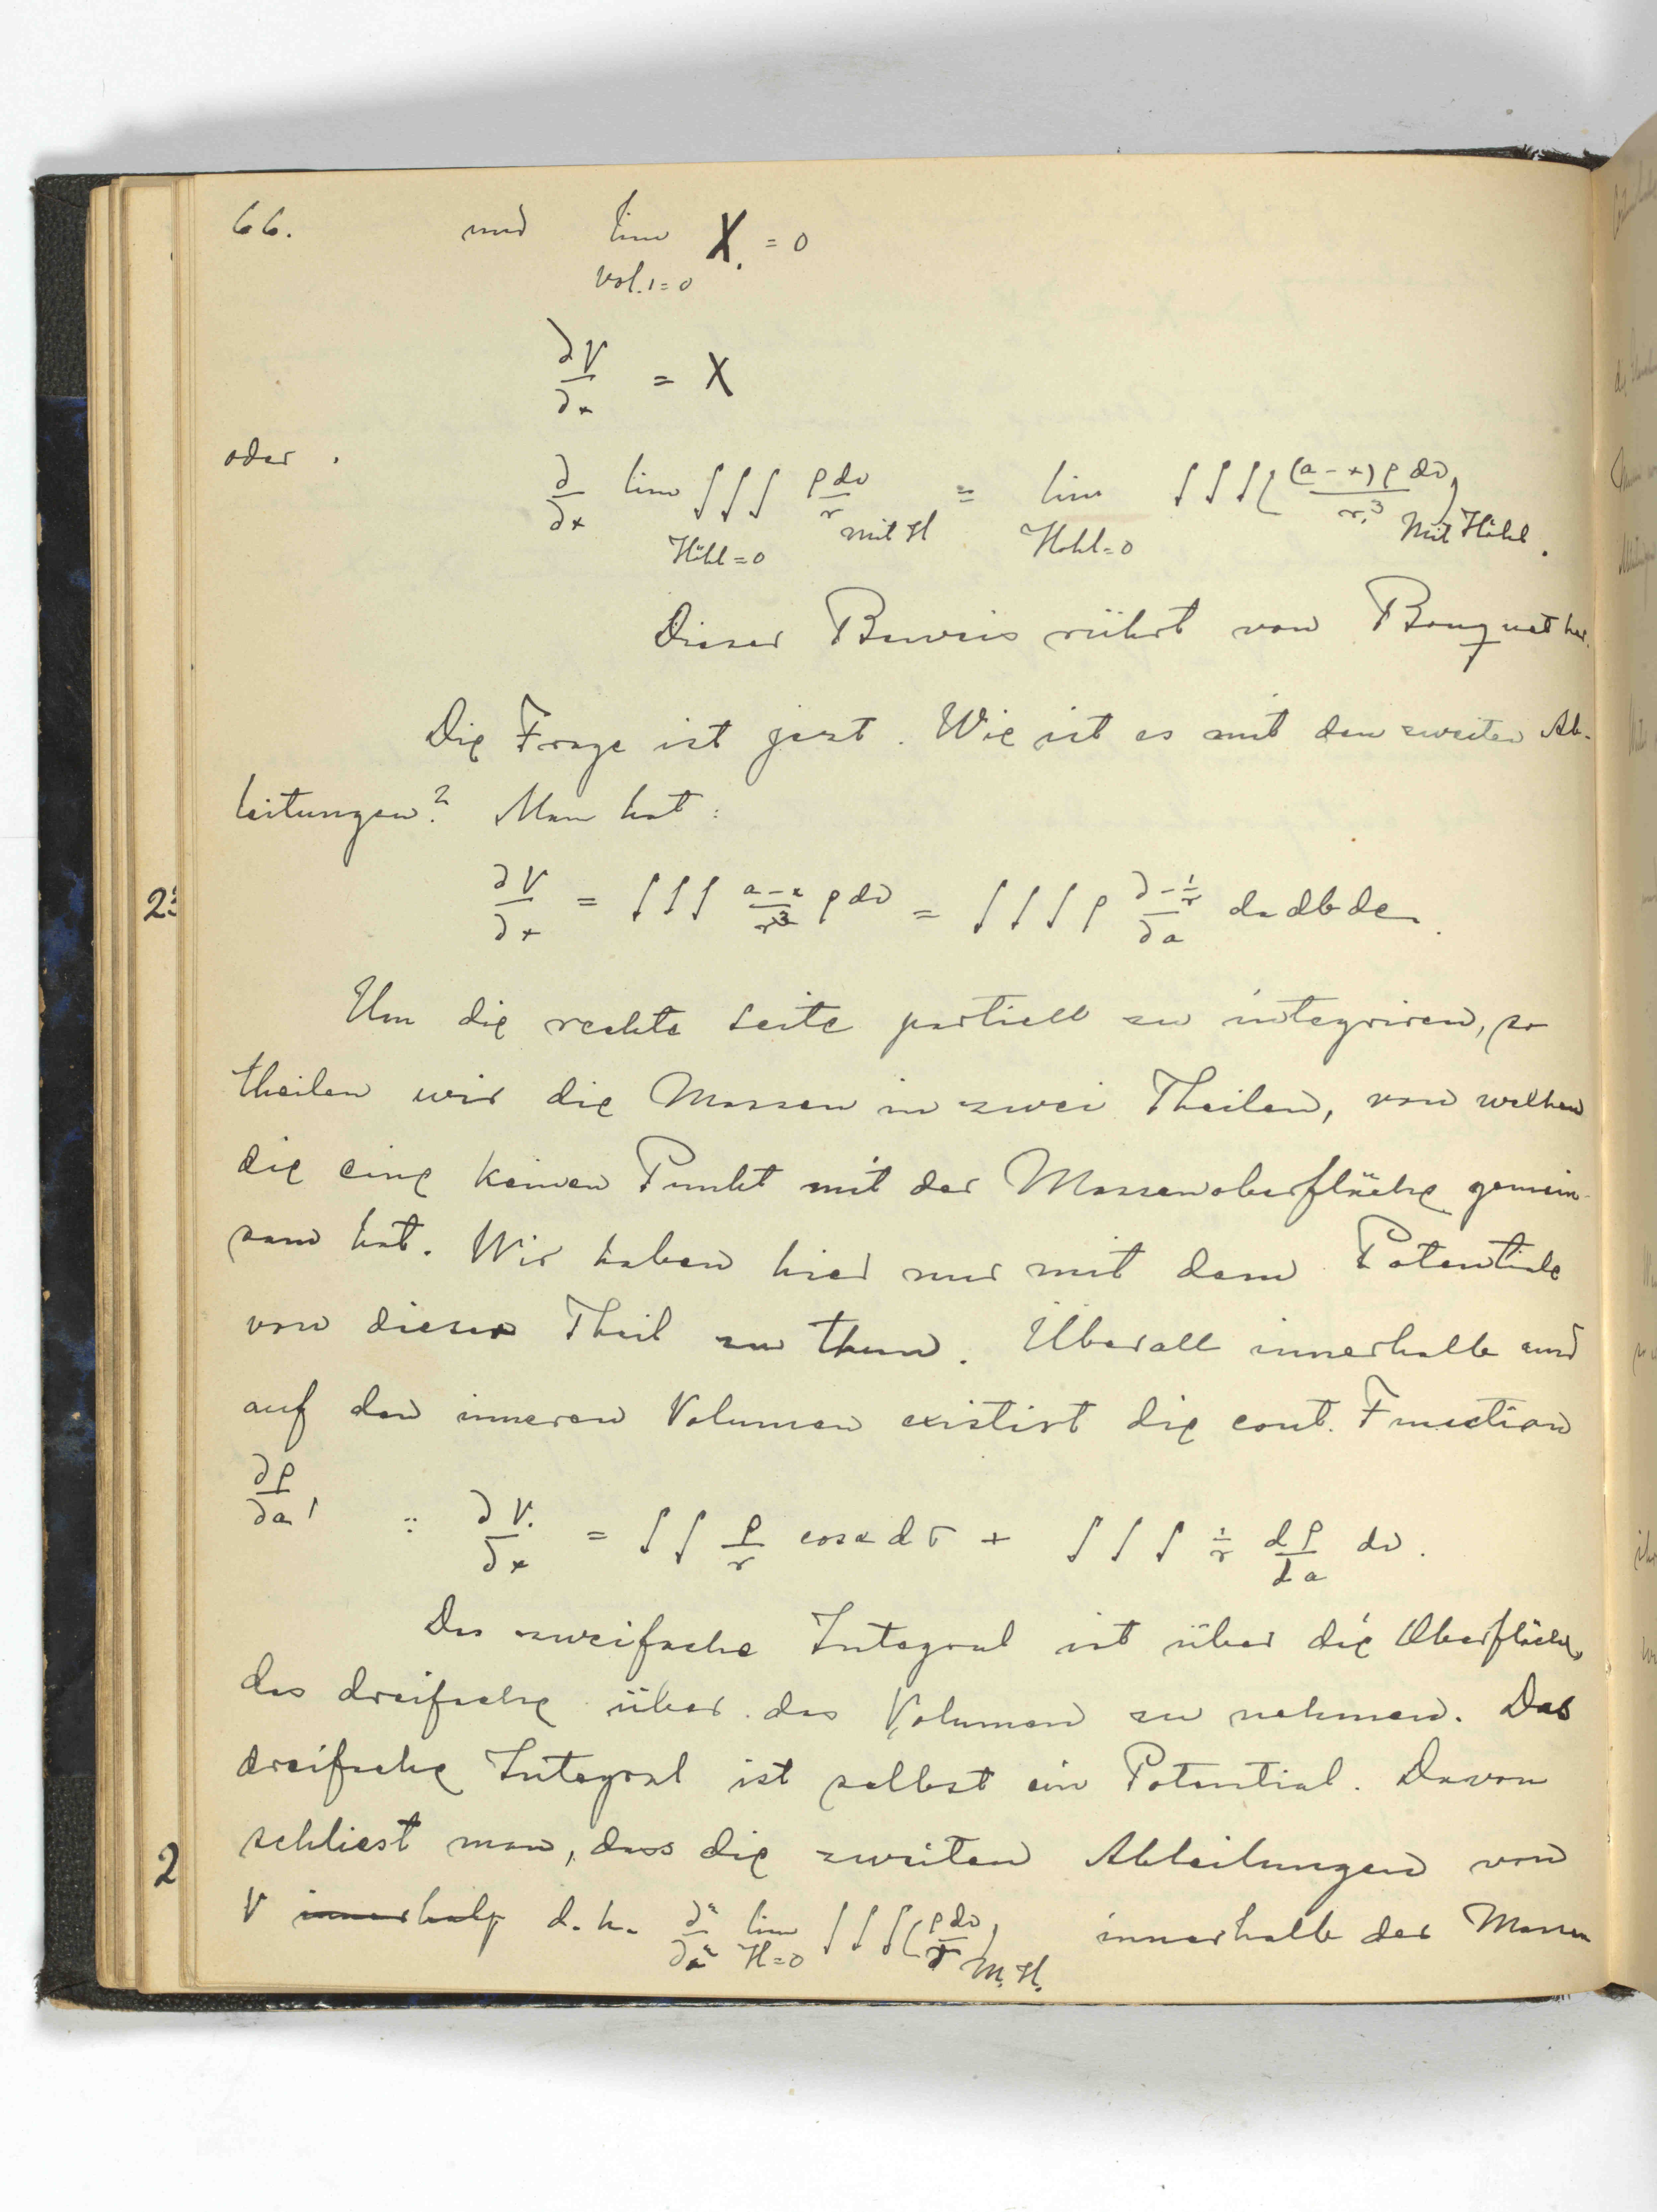 66. und lim X, = 0
vol.1=0
∂V/∂x = X
oder
∂/∂x lim ∫∫∫ ρdv/r mit H = lim ∫∫∫((a-x)ρdv/r,³) Mit Höhl.
Höhl=0 Hohl=0
Dieser Beweis rührt von Bouquet her.
Die Frage ist jezt. Wie ist es mit den zweiten Ab-
leitungen? Man hat:
∂V/∂x = ∫∫∫ a-x/r³ ρdv = ∫∫∫ρ ∂-1/r/∂a da db dc.
23
Um die rechte Seite partiell zu integriren, so
theilen wir die Massen in zwei Theilen, von welhen
die eine keinen Punkt mit der Massenoberfläche gemein-
sam hat. Wir haben hier nur mit dem Potentiale
von dieser Theil zu thun. Überall innerhalb und
auf den inneren Volumen existirt die cont. Function
∂ρ/∂a, : ∂V,/∂x = ∫∫ ρ/r cosα dσ + ∫∫∫ 1/r dρ/da dv.
Das zweifache Integral ist über die Oberfläche,
das dreifache über das Volumen zu nehmen. Das
dreifache Integral ist selbst ein Potential. Davon
schliest man, dass die zweiten Ableitungen von
2
V innerhalb d.h. ∂²/∂a² lim H=0 ∫∫∫(ρdv/r) M.H. innerhalb der Massen